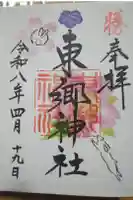 奉拝
東郷神社
令和八年四月十九日